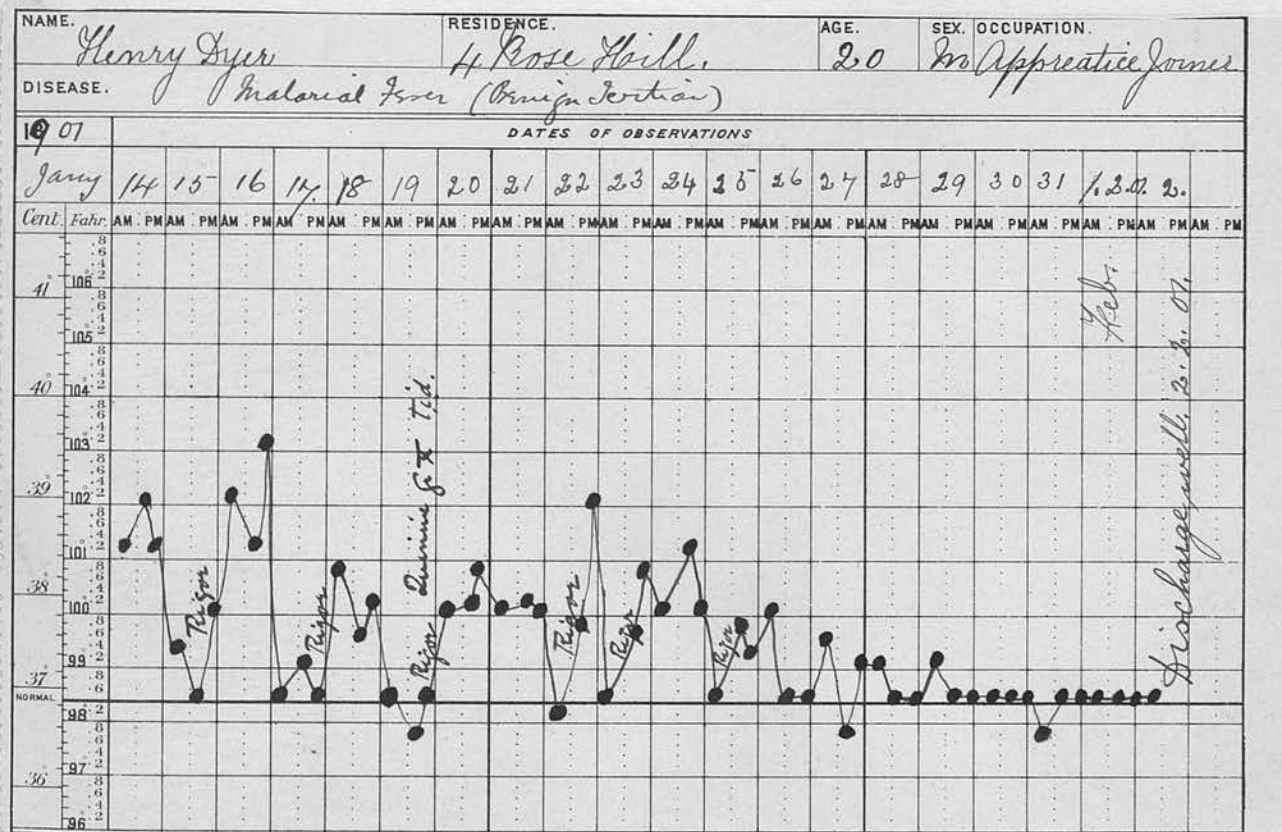 NAME. RESIDENCE. AGE. SEX. OCCUPATION.
Henry Dyer 4 Rose Hill. 20 M Appreatice Joiner
DISEASE. Malarial Fever (Benign Tertian)
1907 DATES OF OBSERVATIONS
Jany 14 15 16 17. 18 19 20 21 22 23 24 25 26 27 28 29 30 31 1.2.07. 2.
Cent. Fahr. AM PM AM PM AM PM AM PM AM PM AM PM AM PM AM PM AM PM AM PM AM PM AM PM AM PM AM PM AM PM AM PM AM PM AM PM AM PM AM PM AM PM
41° 106°
105°
40° 104°
103°
39° 102°
101°
38° 100
99
37°
NORMAL
98
97
36°
96
Rigor
Rigor
Rigor
Quinine gr X T.i.d.
Rigor
Rigor
Rigor
Feb.
Discharged, well. 2. 2. 07.